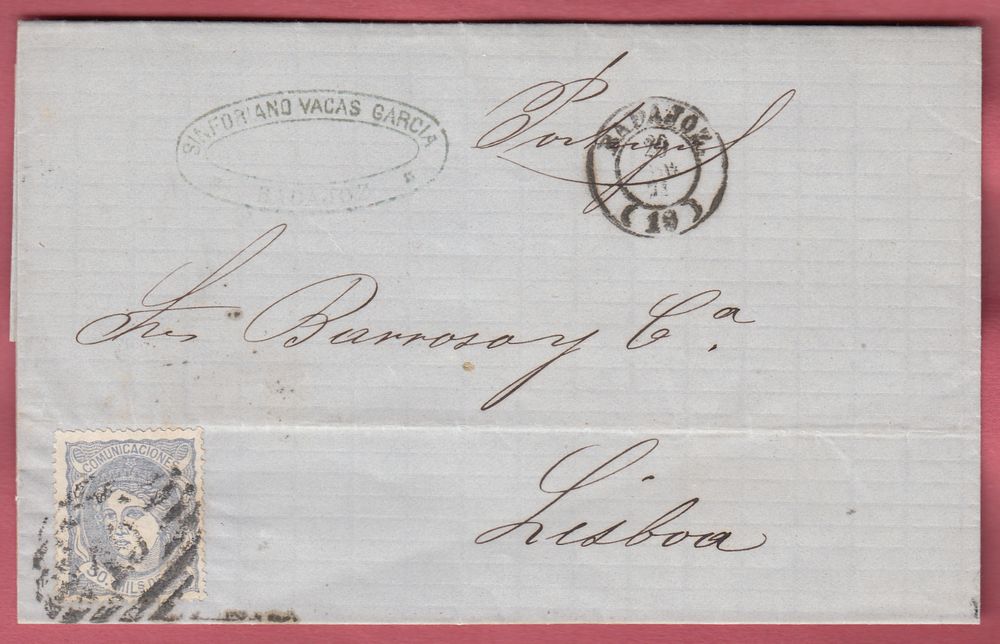 SINFORIANO VACAS GARCIA
BADAJOZ
Portugal
BADAJOZ
25
(19)
Sres Barroso y Cª.
Lisboa
COMUNICACIONES
50 MILS